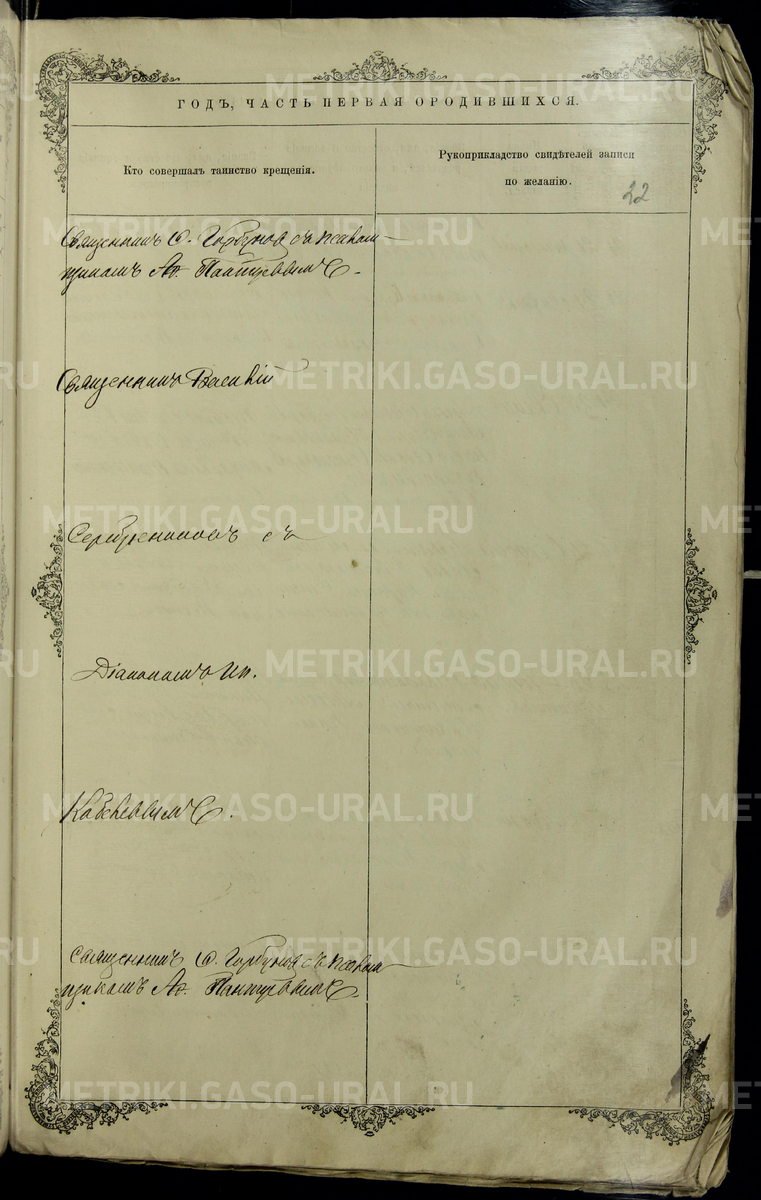 ГОДЪ, ЧАСТЬ ПЕРВАЯ О РОДИВШИХСЯ.
Кто совершалъ таинство крещенія.
Рукоприкладство свидѣтелей записи
по желанію.
22
Священникъ Ѳ. Горбуновъ съ псалом-
щикомъ Ал.
Священникъ Василій
съ
Діакономъ Ип.
Священникъ Ѳ. Горбуновъ съ псалом-
щикомъ Ал.
METRIKI.GASO-URAL.RU